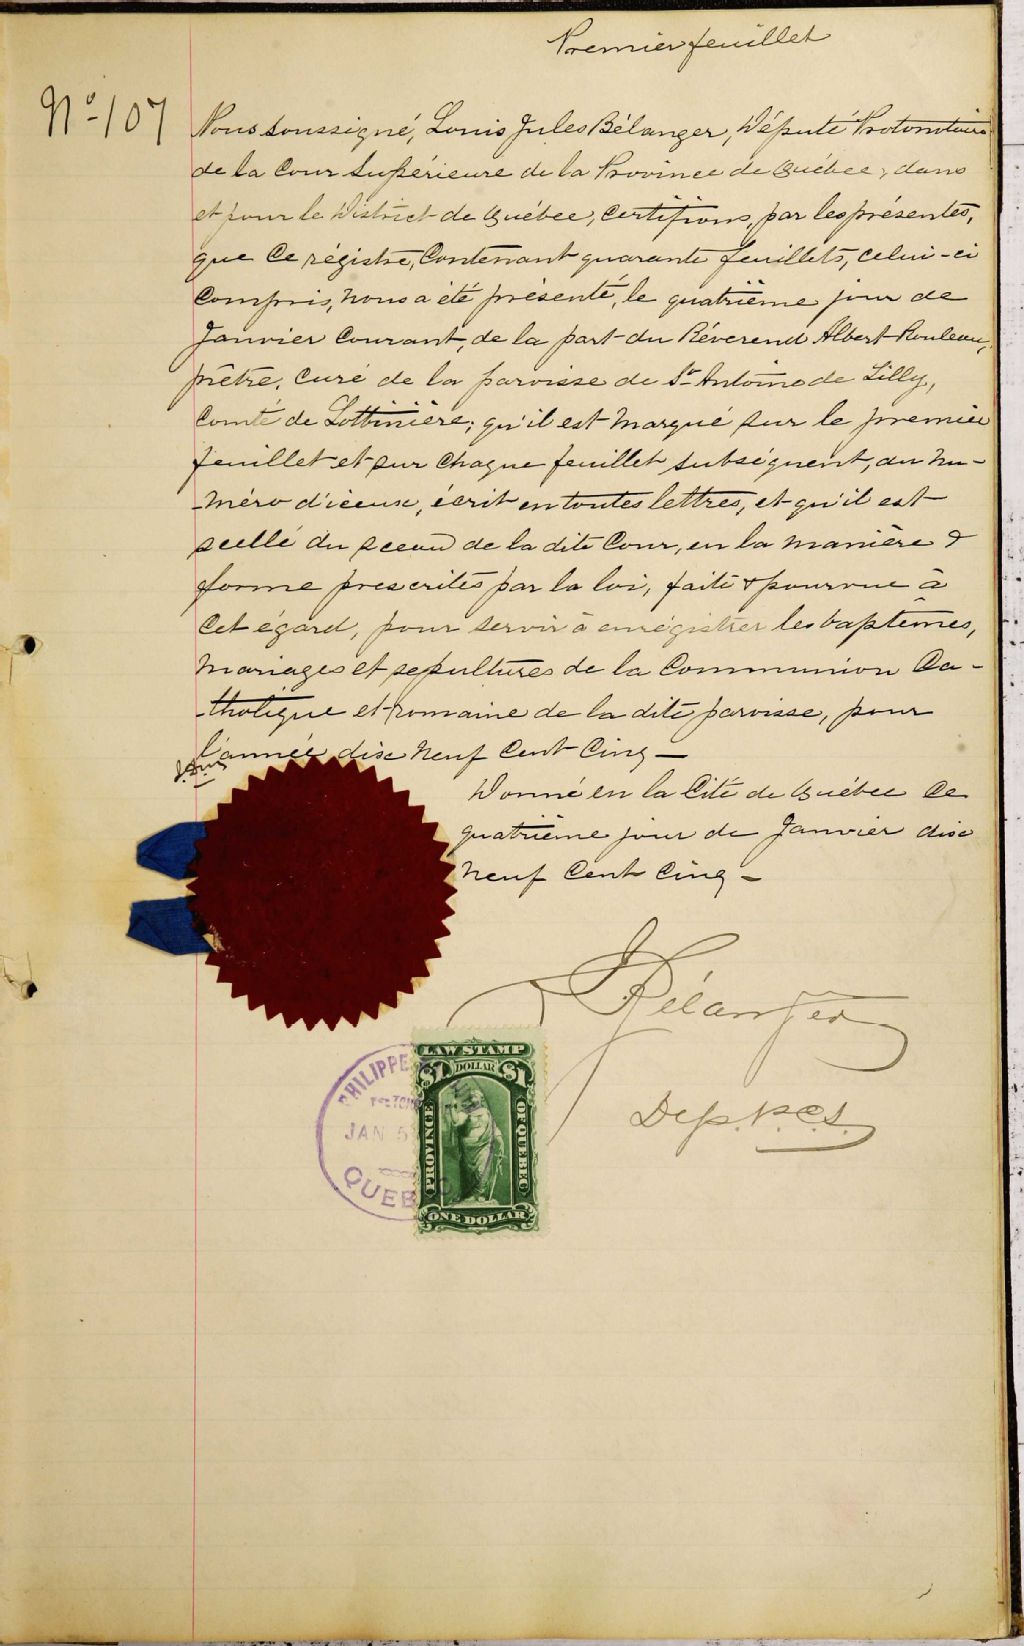 Premier feuillet
No 107
Nous soussigné, Louis Jules Bélanger, Député Protonotaire
de la Cour Supérieure de la Province de Québec, dans
et pour le District de Québec, certifions, par les présentes,
que ce régistre, contenant quarante feuillets, celui-ci
compris, nous a été présenté, le quatrième jour de
Janvier courant, de la part du Révérend Albert Rouleau,
prêtre, curé de la paroisse de St Antoine de Tilly,
Comté de Lotbinière; qu'il est marqué sur le premier
feuillet et sur chaque feuillet subséquent, du nu-
-méro d'iceux, écrit en toutes lettres, et qu'il est
scellé du sceau de la dite Cour, en la manière &
forme prescrites par la loi, faite & pourvue à
cet égard, pour servir à enrégistrer les baptêmes,
mariages et sépultures de la Communion Ca-
-tholique et romaine de la dite paroisse, pour
l'année dix neuf cent cinq —
Donné en la Cité de Québec ce
quatrième jour de Janvier dix
neuf cent cinq —
Bélanger
Dep. P.C.S.
LAW STAMP
$1 DOLLAR $1
PROVINCE OF QUEBEC
ONE DOLLAR
PHILIPPE
JAN 5
QUEBEC